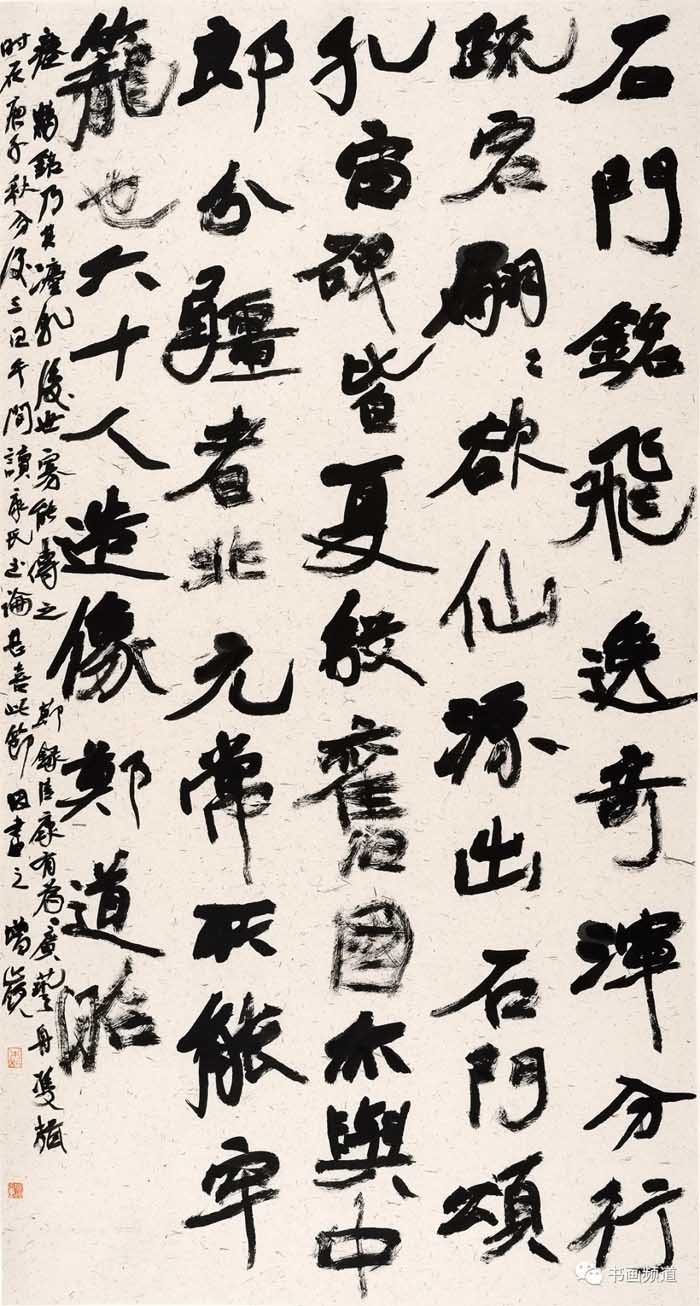 石門銘飛逸奇渾分行
疏宕翩〻欲仙源出石門頌
孔宙碑皆夏殷舊國亦與中
郎分疆者非元常所能牢
籠也六十人造像鄭道昭
瘞鶴銘乃其法乳後世寡能傳之 節錄自康有為廣藝舟雙楫
时在庚子秋分後三日午間讀康氏书論甚喜此節因書之
书画频道